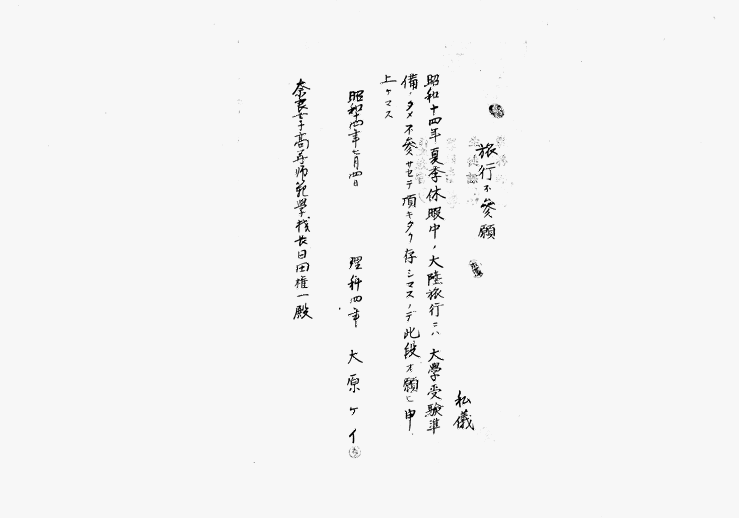 旅行不參願
私儀
昭和十四年夏季休暇中ノ大陸旅行ニハ大學受驗準
備ノタメ不參サセテ頂キタク存シマスノデ此段オ願ヒ申
上ケマス
昭和十四年七月四日
理科四年 大原ケイ
奈良女子高等師範學校長日田權一殿